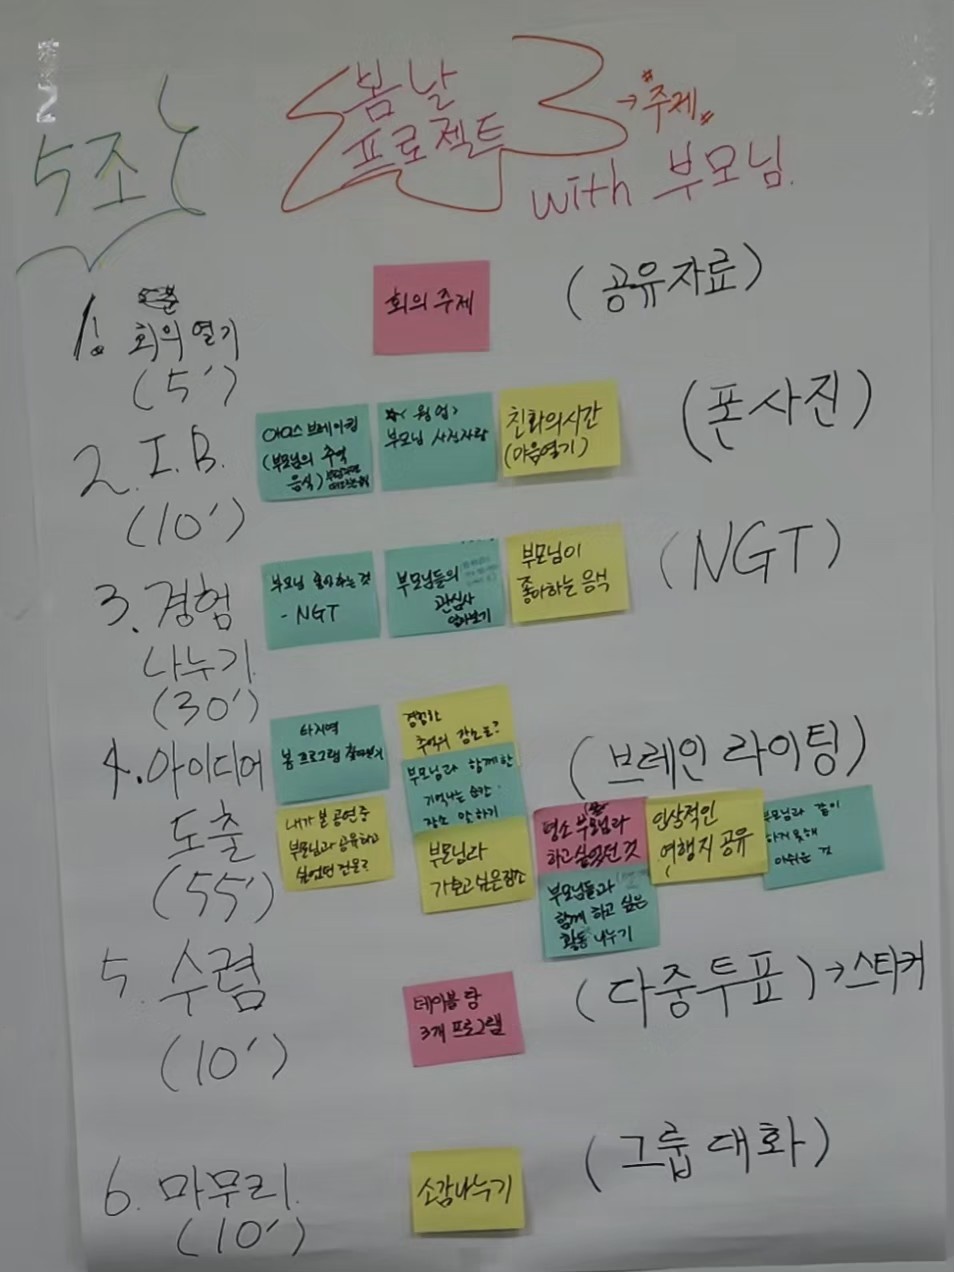 5조
봄날
프로젝트
→ "주제"
with 부모님.
1. 회의 열기
(5′)
회의 주제
(공유자료)
2. I.B.
(10′)
아이스 브레이킹
(부모님의 추억
음식)
<웜업>
부모님 사진자랑
친화의시간
(마음열기)
(폰사진)
3. 경험
나누기
(30′)
부모님 좋아하는 것
- NGT
부모님들의
관심사
알아보기
부모님이
좋아하는 음식
(NGT)
4. 아이디어
도출
(55′)
타지역
봄 프로그램 찾아보기
내가 본 공연 중
부모님과 공유하고
싶었던 건은?
경험한
추억의 장소는?
부모님과 함께한
기억나는 순간·
장소 말하기
부모님과
가보고 싶은 장소
(브레인 라이팅)
평소 부모님과
하고 싶었던 것
부모님들과
함께 하고 싶은
활동 나누기
인상적인
여행지 공유
부모님과 같이
하지 못해
아쉬운 것
5. 수렴
(10′)
테이블 당
3개 프로그램
(다중투표) → 스티커
6. 마무리.
(10′)
소감나누기
(그룹 대화)